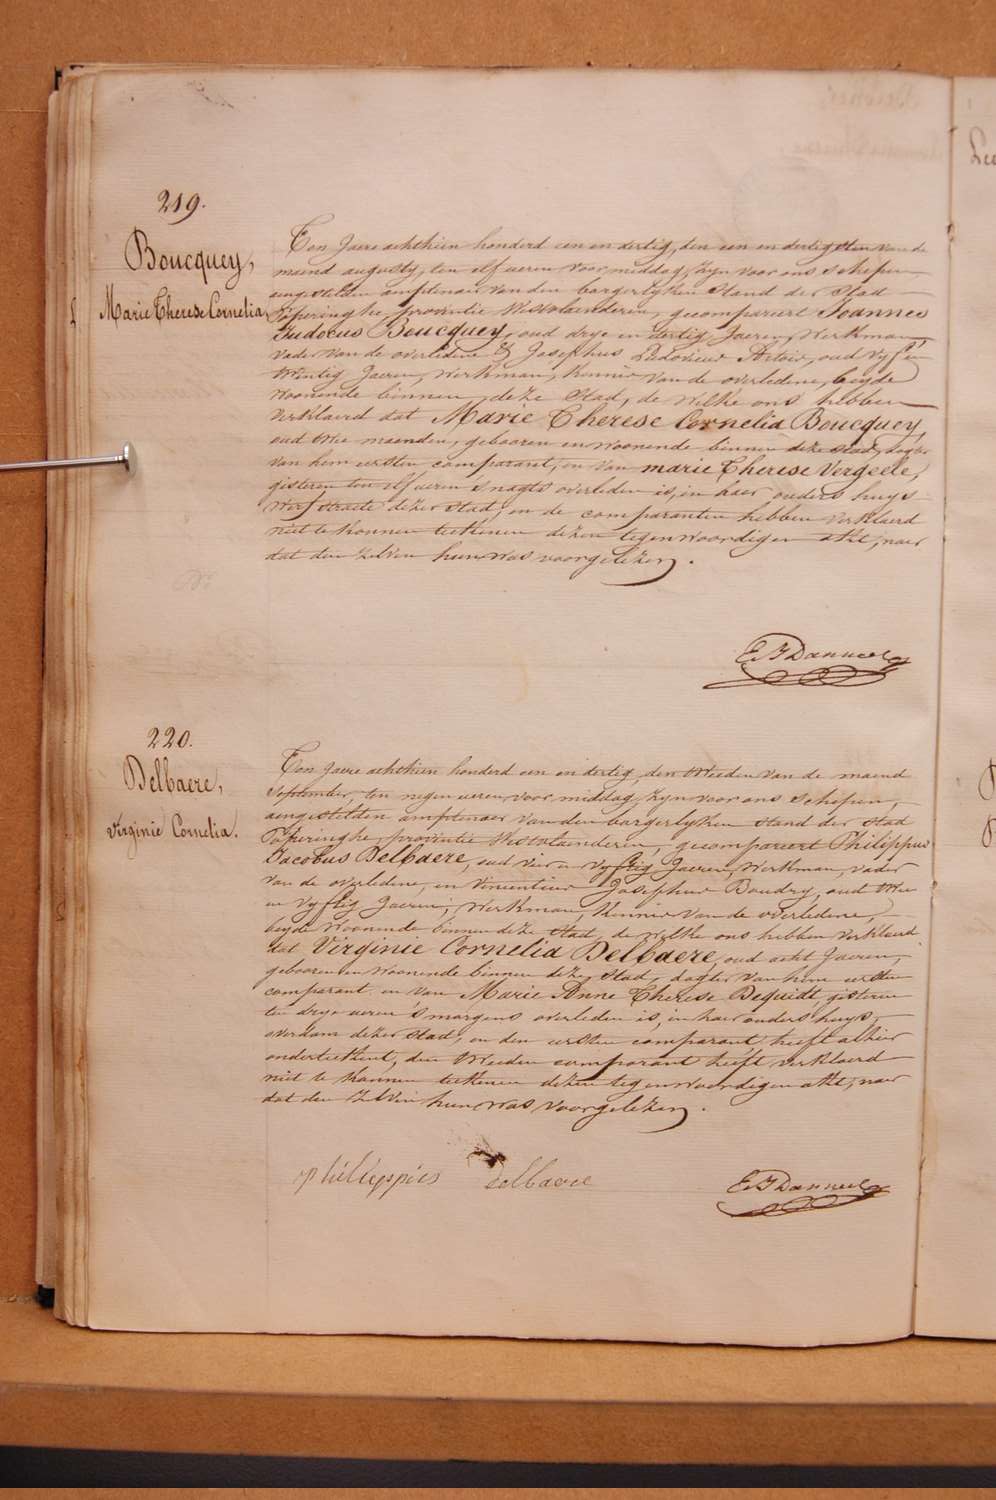 219.
Boucquey,
Marie Therese Cornelia,
Ten Jaere achthien honderd een en dertig, den een en dertigsten van de
maend augusty, ten elf ueren voor middag, zyn voor ons schepen
aengestelden amptenaer van den borgerlyken stand der stad
Poperinghe, provintie Westvlaenderen, gecompareert Joannes
Judocus Boucquey, oud drye en dertig Jaeren, Werkman,
vader van de overledene & Josephus Ludovicus Artois, oud vyf en
twintig Jaeren, Werkman, kennis van de overledene, beyde
woonende binnen deze stad, de welke ons hebben
verklaerd dat Marie Therese Cornelia Boucquey,
oud twee maenden, gebooren en woonende binnen deze stad, dogter
van hem eersten comparant, en van marie Therese Vergeele,
gisteren ten elf ueren s'nagts overleden is, in haer ouders huys
straete dezer stad, en de comparanten hebben verklaerd
niet te konnen teekenen dezen tegenwoordigen akt, naer
dat den zelven hun was voorgelezen.
E. J Danneel
220.
Delbaere,
Virginie Cornelia.
Ten Jaere achthien honderd een en dertig, den tweeden van de maend
September, ten negen ueren voor middag, zyn voor ons schepen,
aengestelden amptenaer van den borgerlyken stand der stad
Poperinghe, provintie Westvlaenderen, gecompareert Philippus
Jacobus Delbaere, oud vier en vyftig Jaeren, Werkman, vader
van de overledene, en Vincentius Josephus Boudry, oud twee
en vyftig Jaeren, Werkman, kennis van de overledene,
beyde woonende binnen deze stad, de welke ons hebben verklaerd
dat Virginie Cornelia Delbaere, oud acht Jaeren,
gebooren en woonende binnen deze stad, dogter van hem eersten
comparant en van Marie Anne Therese Dequidt, gisteren
ten drye ueren s'morgens overleden is, in haer ouders huys,
overdam dezer stad, en den eersten comparant heeft alhier
onderteekent, den tweeden comparant heeft verklaerd
niet te konnen teekenen dezen tegenwoordigen akt, naer
dat den zelven hun was voorgelezen.
philieppies delbaere
E. J Danneel